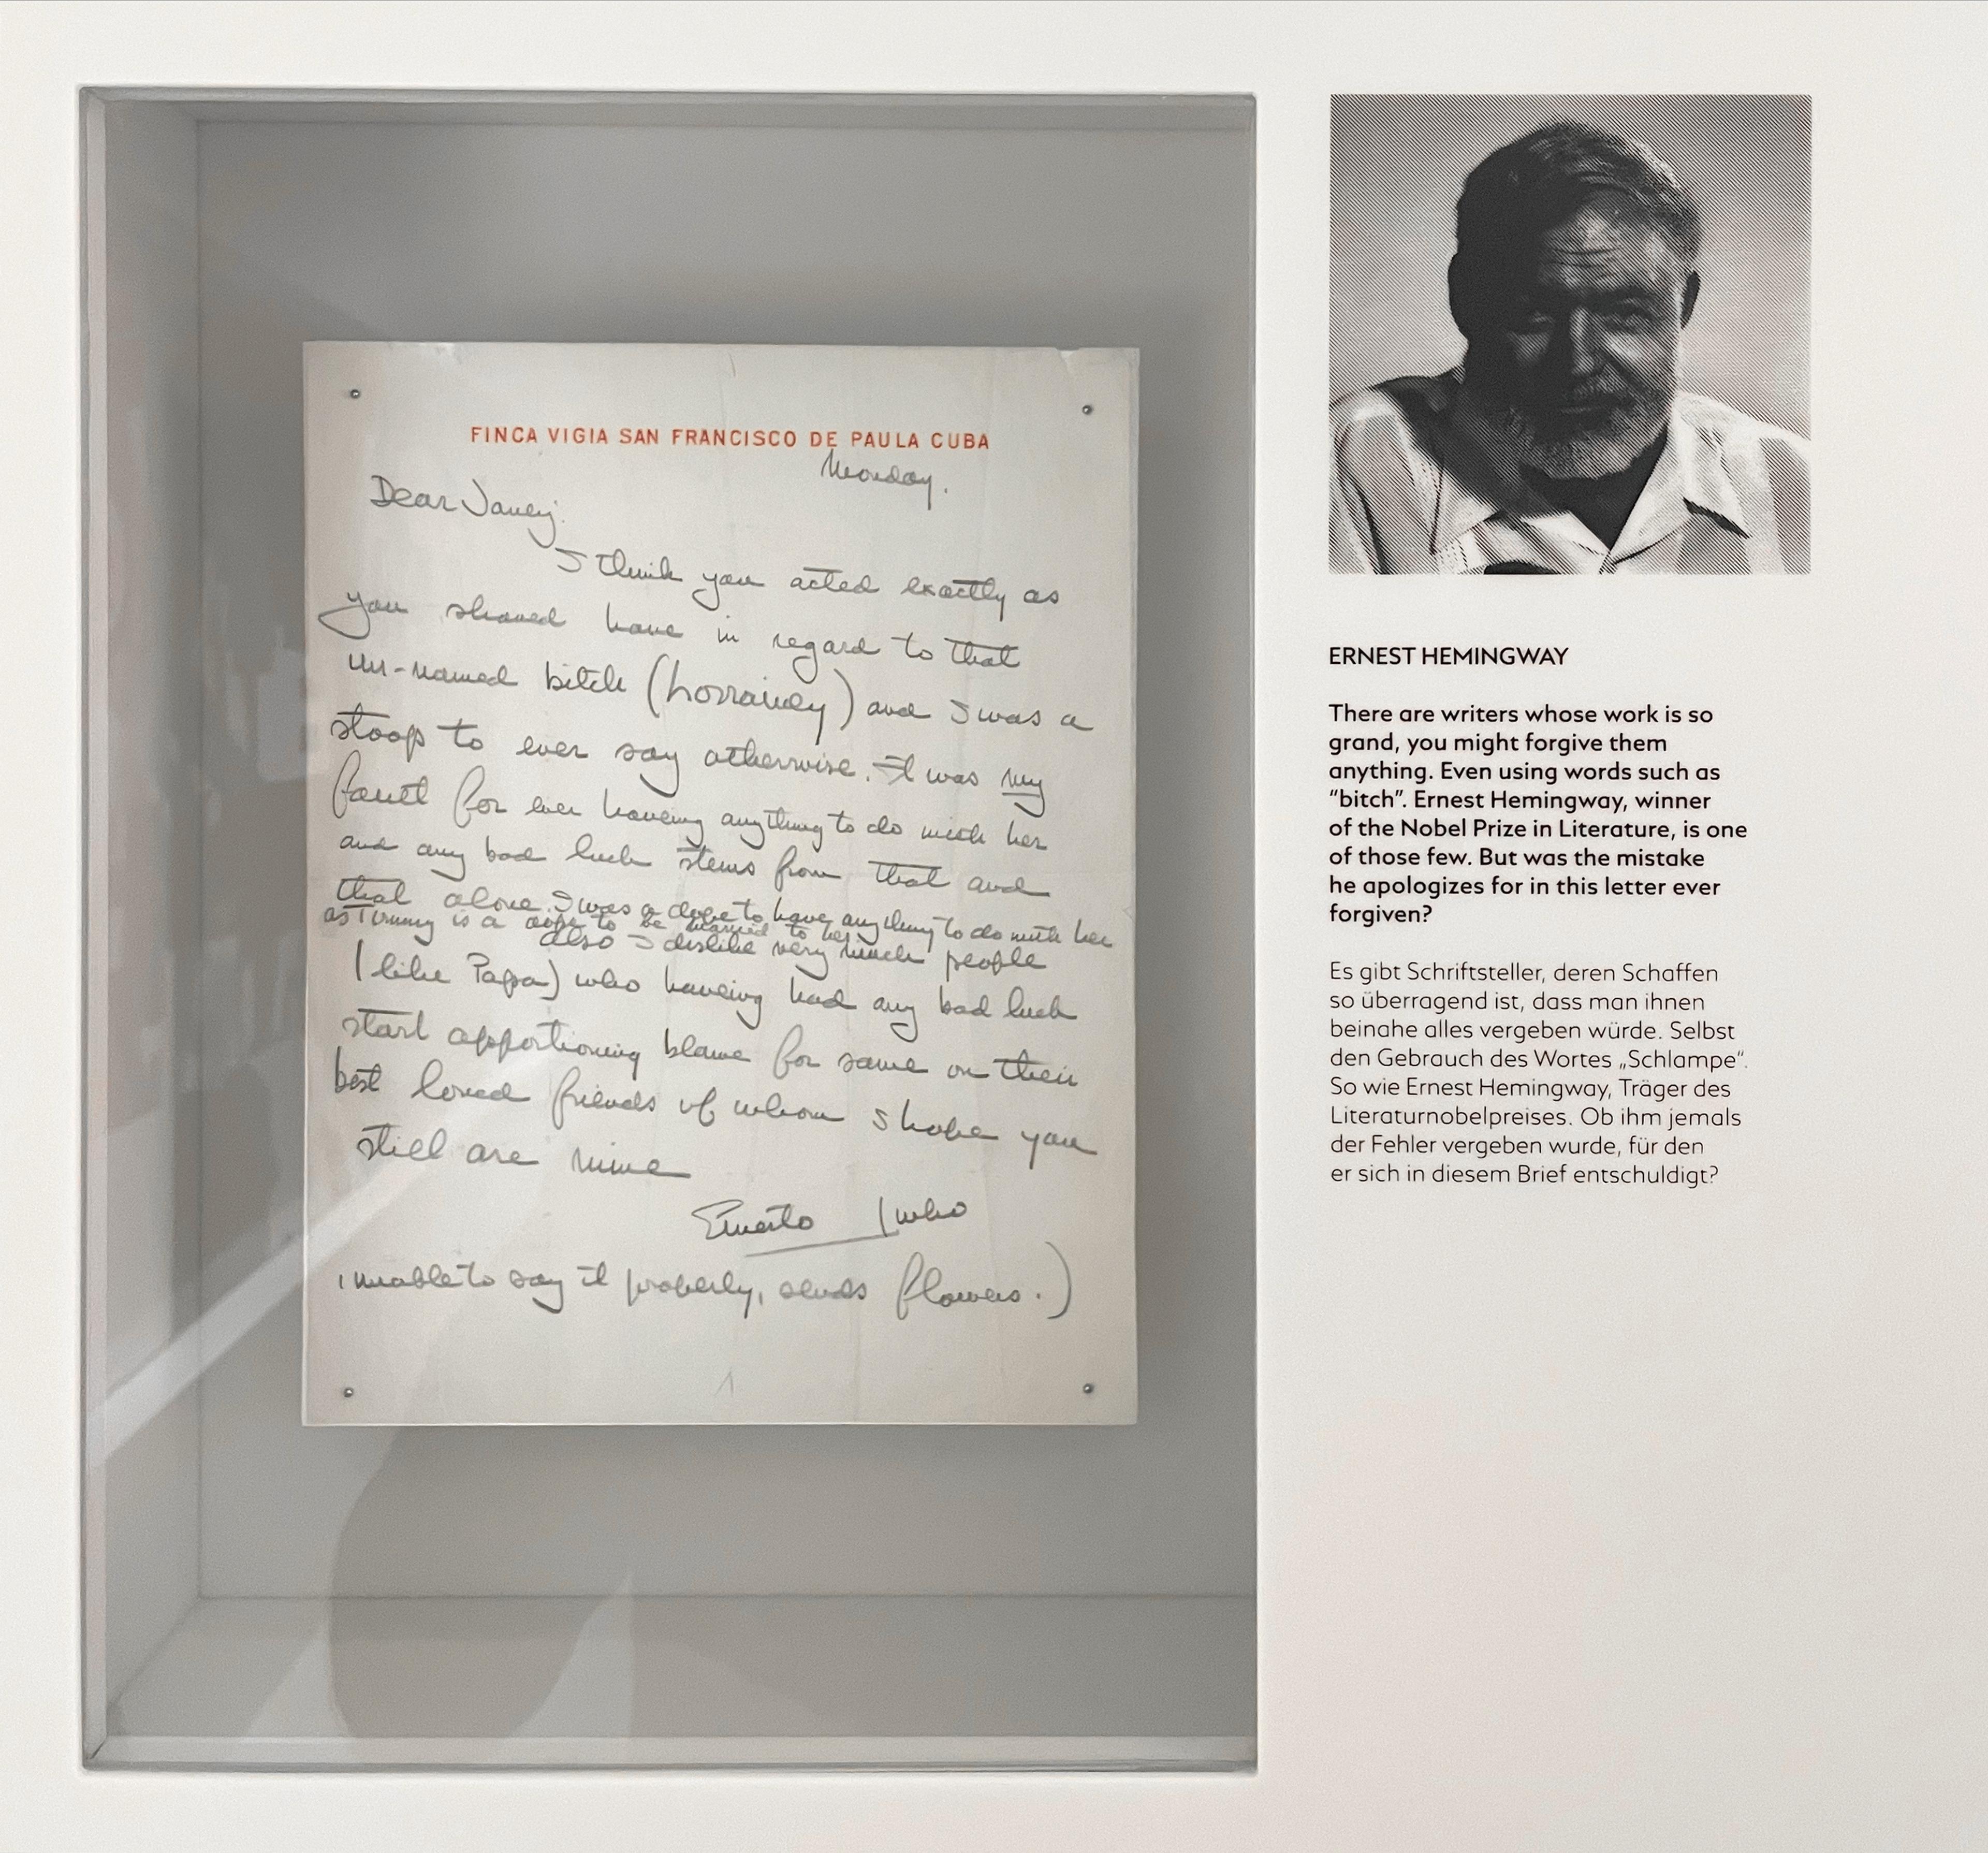 FINCA VIGIA SAN FRANCISCO DE PAULA CUBA
Monday.
Dear Janey:
I think you acted exactly as
you should have in regard to that
un-named bitch (Lorrainey) and I was a
stoop to ever say otherwise. It was my
fault for ever haveing anything to do with her
and any bad luck stems from that and
that alone. I was a dope to have anything to do with her
as Tommy is a dope to be married to her
Also I dislike very much people
(like Papa) who haveing had any bad luck
start apportioning blame for same on their
best loved friends of whom I hope you
still are mine
Ernesto (who
unable to say it properly, sends flowers.)
ERNEST HEMINGWAY
There are writers whose work is so
grand, you might forgive them
anything. Even using words such as
“bitch”. Ernest Hemingway, winner
of the Nobel Prize in Literature, is one
of those few. But was the mistake
he apologizes for in this letter ever
forgiven?
Es gibt Schriftsteller, deren Schaffen
so überragend ist, dass man ihnen
beinahe alles vergeben würde. Selbst
den Gebrauch des Wortes „Schlampe“.
So wie Ernest Hemingway, Träger des
Literaturnobelpreises. Ob ihm jemals
der Fehler vergeben wurde, für den
er sich in diesem Brief entschuldigt?